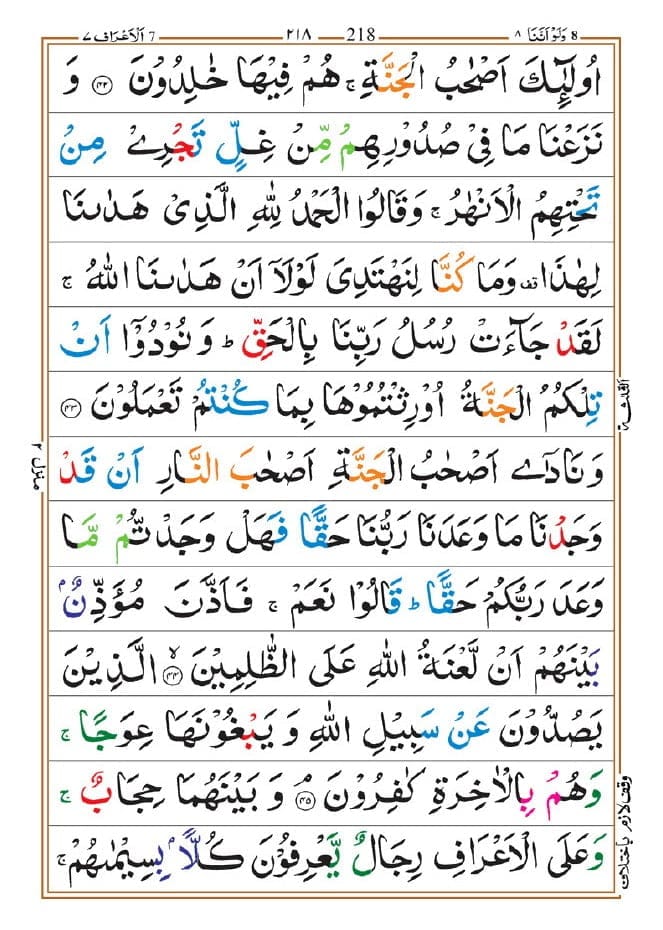 ٨ وَلَوْ اَنَّنَا 8 218 ٢١٨ 7 اَلْاَعْرَاف ٧
اُولٰٓئِكَ اَصْحٰبُ الْجَنَّةِ ۚ هُمْ فِيْهَا خٰلِدُوْنَ ﴿۴۲﴾ وَ
نَزَعْنَا مَا فِيْ صُدُوْرِهِمْ مِّنْ غِلٍّ تَجْرِيْ مِنْ
تَحْتِهِمُ الْاَنْهٰرُ ۚ وَقَالُوا الْحَمْدُ لِلّٰهِ الَّذِيْ هَدٰىنَا
لِهٰذَا ۟ وَمَا كُنَّا لِنَهْتَدِيَ لَوْلَاۤ اَنْ هَدٰىنَا اللّٰهُ ۚ
لَقَدْ جَآءَتْ رُسُلُ رَبِّنَا بِالْحَقِّ ؕ وَنُوْدُوْۤا اَنْ
تِلْكُمُ الْجَنَّةُ اُوْرِثْتُمُوْهَا بِمَا كُنْتُمْ تَعْمَلُوْنَ ﴿۴۳﴾
وَنَادٰۤى اَصْحٰبُ الْجَنَّةِ اَصْحٰبَ النَّارِ اَنْ قَدْ
وَجَدْنَا مَا وَعَدَنَا رَبُّنَا حَقًّا فَهَلْ وَجَدْتُّمْ مَّا
وَعَدَ رَبُّكُمْ حَقًّا ؕ قَالُوْا نَعَمْ ۚ فَاَذَّنَ مُؤَذِّنٌۢ
بَيْنَهُمْ اَنْ لَّعْنَةُ اللّٰهِ عَلَى الظّٰلِمِيْنَ ﴿۴۴﴾ۙ الَّذِيْنَ
يَصُدُّوْنَ عَنْ سَبِيْلِ اللّٰهِ وَيَبْغُوْنَهَا عِوَجًا ۚ
وَهُمْ بِالْاٰخِرَةِ كٰفِرُوْنَ ﴿۴۵﴾ۘ وَبَيْنَهُمَا حِجَابٌ ۚ
وَعَلَى الْاَعْرَافِ رِجَالٌ يَّعْرِفُوْنَ كُلًّاۢ بِسِيْمٰىهُمْ ۚ
منزل ۲
وقف لازم باختلاف